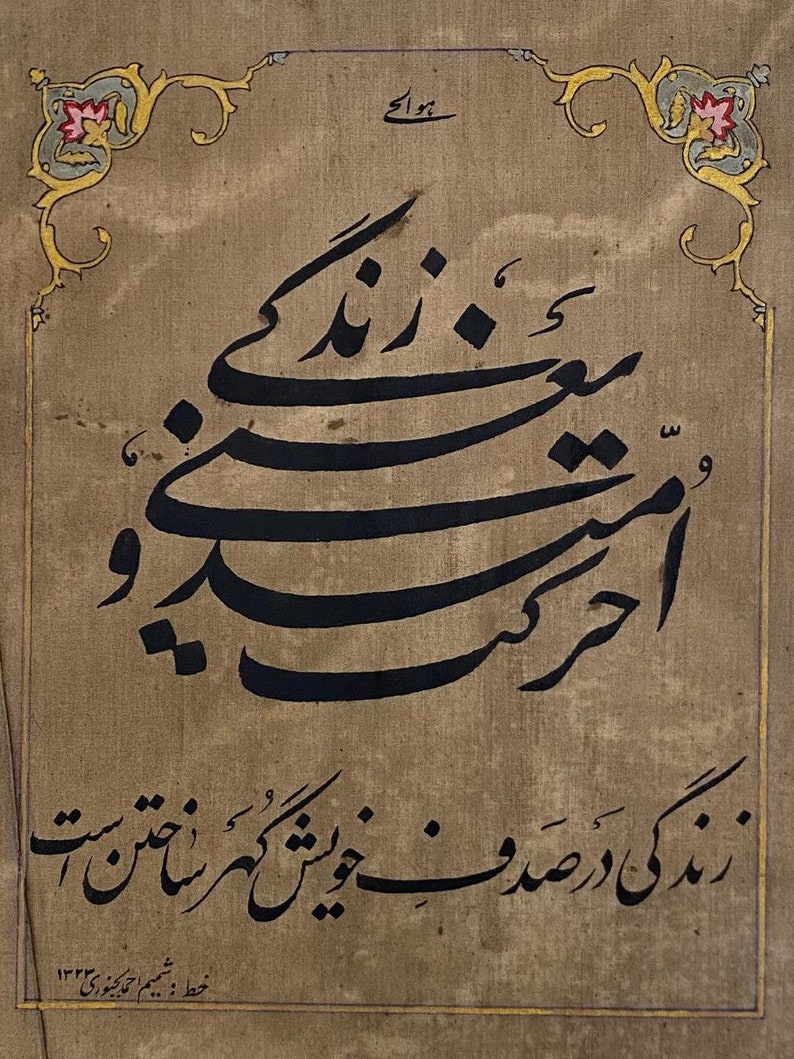 هوالحی
زندگی یعنی امّید و حرکت
زندگی در صَدفِ خویش گُهَر ساختن است
خط : شمیم احمد بجنوری ۱۳۲۳